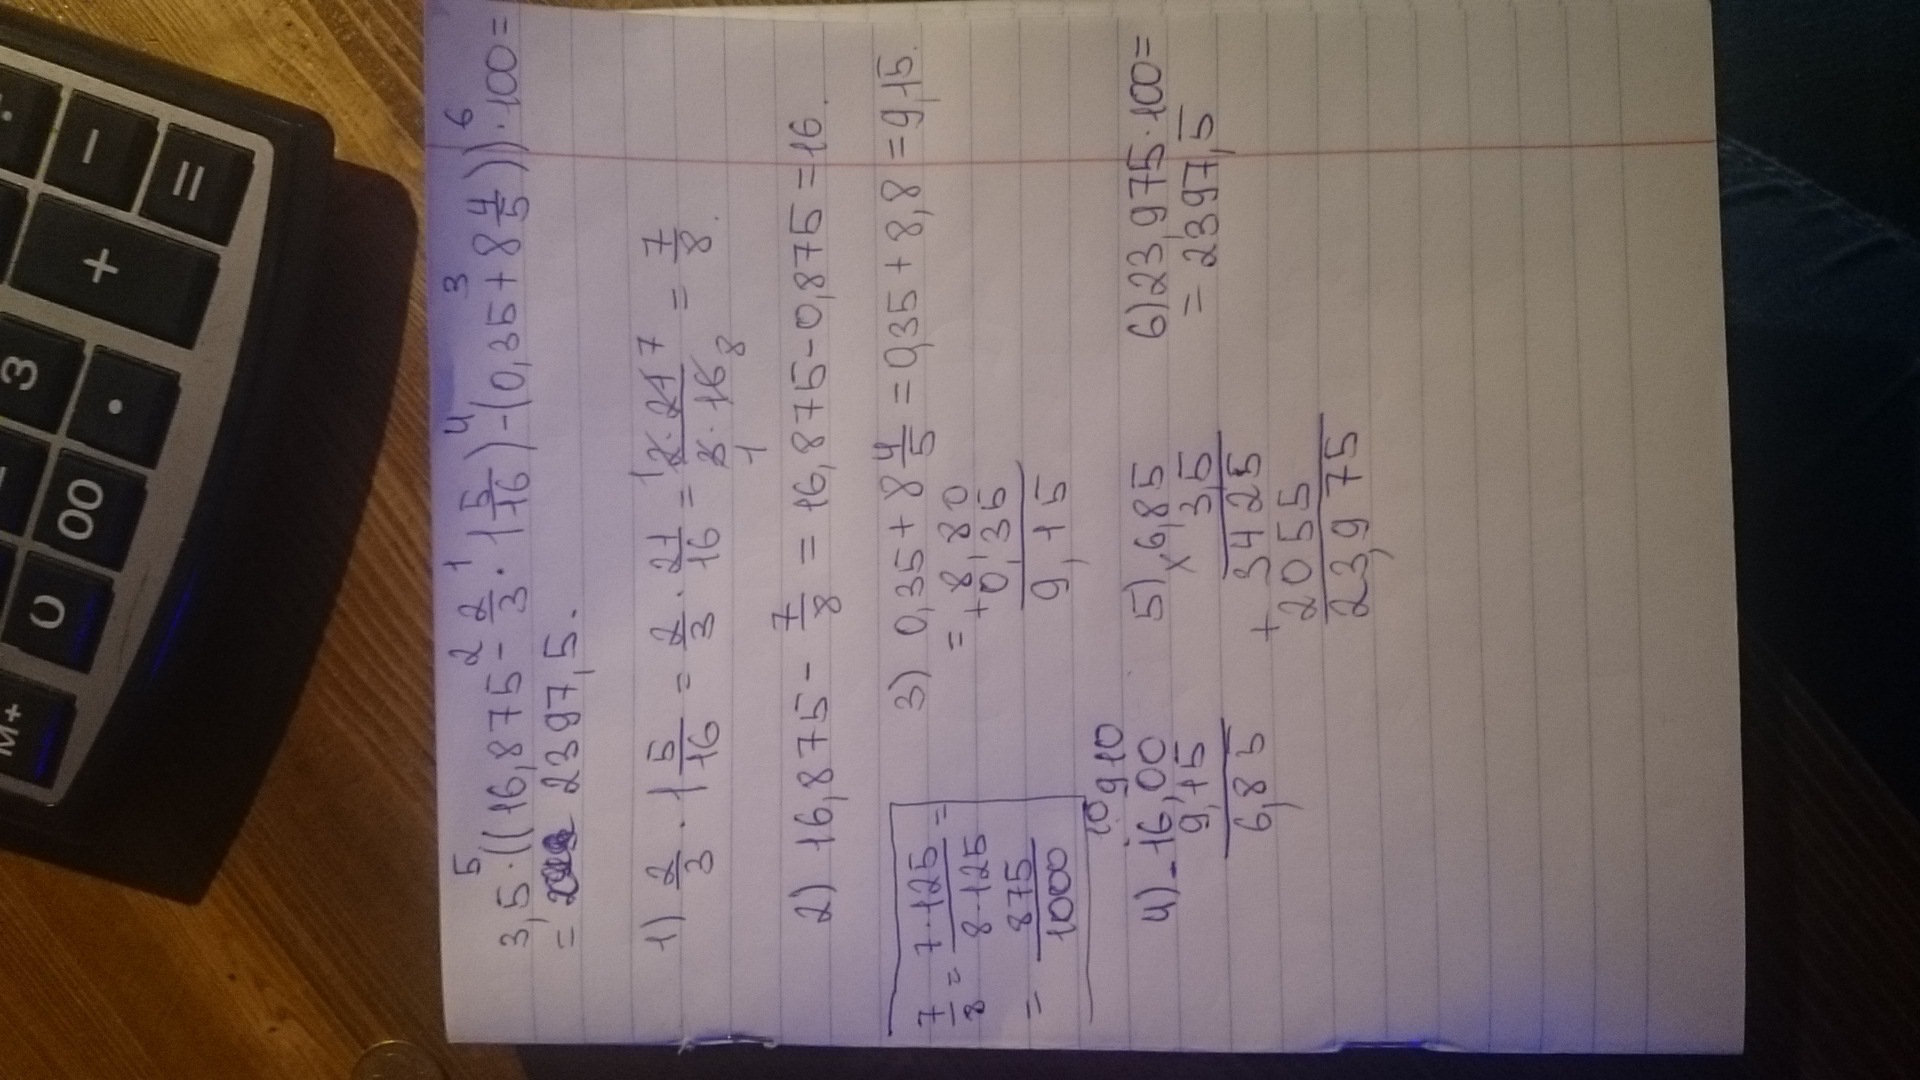 3,5·((16,875 - 2/3 · 1 5/16) - (0,35 + 8 4/5))·100 =
5 2 1 4 3 6
= 2397,5.
1) 2/3 · 1 5/16 = 2/3 · 21/16 = 2·21/3·16 = 7/8.
1 7
1 8
2) 16,875 - 7/8 = 16,875 - 0,875 = 16.
7/8 = 7·125/8·125 =
= 875/1000
3) 0,35 + 8 4/5 = 0,35 + 8,8 = 9,15.
= + 8,80
0,35
9,15
10 9 10
4) - 16,00
9,15
6,85
5) × 6,85
3,5
+ 3425
2055
23,975
6) 23,975·100 =
= 2397,5
M+
0
00
.
3
+
-
=
÷